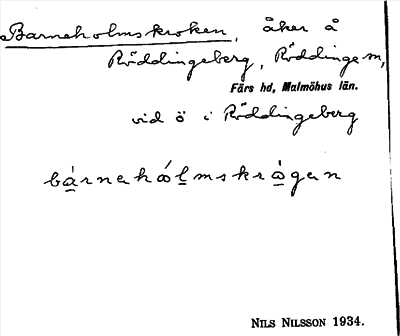 Barneholmskroken, åker å
Röddingeberg, Röddinge sn,
Färs hd, Malmöhus län.
vid ö i Röddingeberg
bárnahólmskrògan
NILS NILSSON 1934.